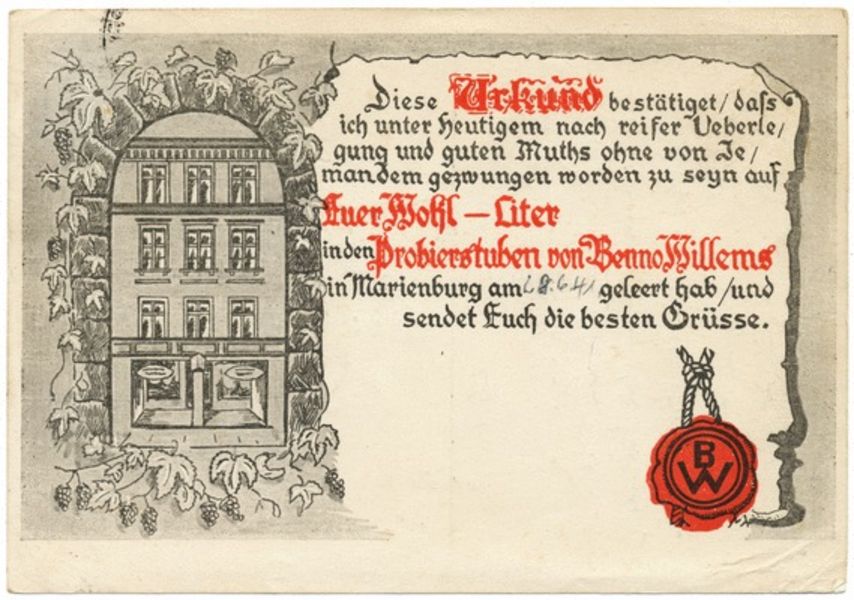 Diese Urkund bestätiget/dass
ich unter Heutigem nach reifer Ueberle/
gung und guten Muths ohne von Je/
mandem gezwungen worden zu seyn auf
Euer Wohl – Liter
in den Probierstuben von Benno Willems
in Marienburg am geleert hab/und
sendet Euch die besten Grüsse.
B
W